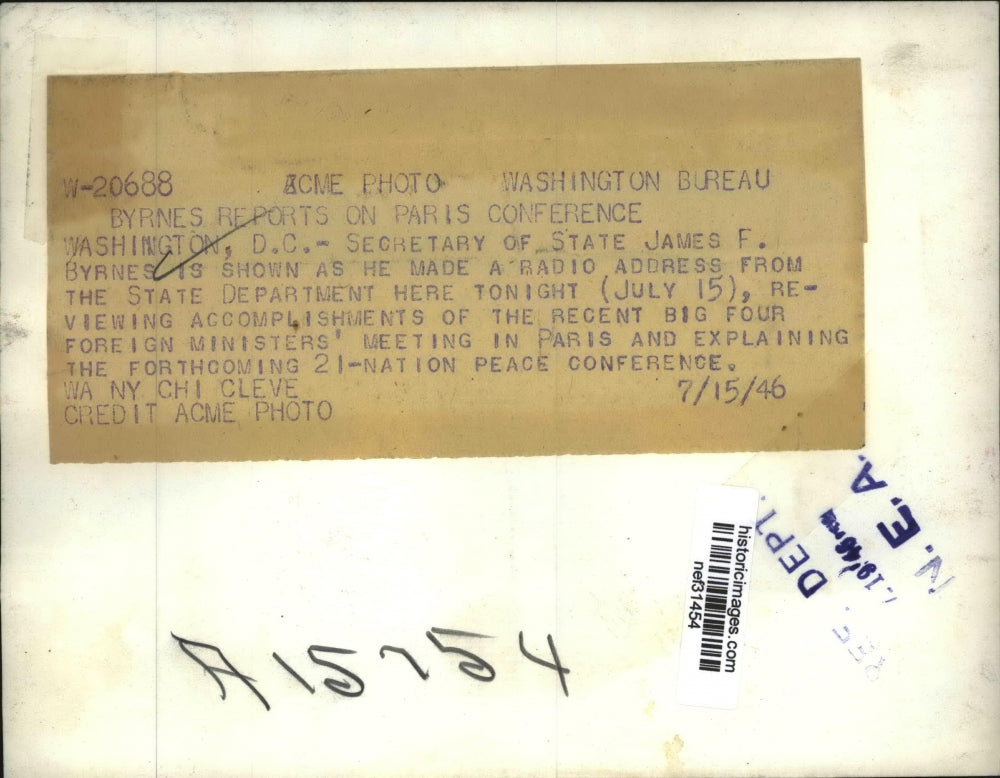 W-20688 ACME PHOTO WASHINGTON BUREAU
BYRNES REPORTS ON PARIS CONFERENCE
WASHINGTON, D.C.- SECRETARY OF STATE JAMES F.
BYRNES IS SHOWN AS HE MADE A RADIO ADDRESS FROM
THE STATE DEPARTMENT HERE TONIGHT (JULY 15), RE-
VIEWING ACCOMPLISHMENTS OF THE RECENT BIG FOUR
FOREIGN MINISTERS' MEETING IN PARIS AND EXPLAINING
THE FORTHCOMING 21-NATION PEACE CONFERENCE.
WA NY CHI CLEVE 7/15/46
CREDIT ACME PHOTO
historicimages.com
nef31454
REF. DEPT.
N.E.A.
A15754